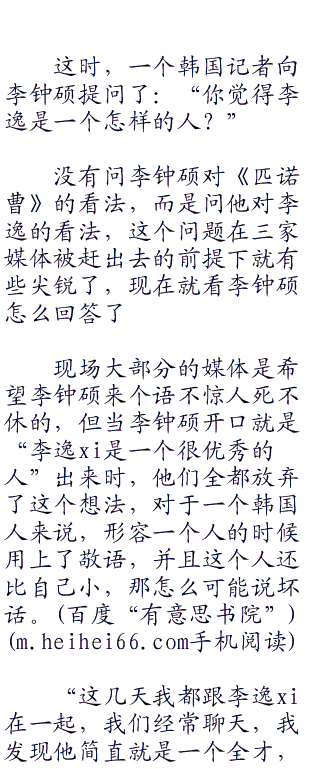 这时，一个韩国记者向
李钟硕提问了：“你觉得李
逸是一个怎样的人？”
没有问李钟硕对《匹诺
曹》的看法，而是问他对李
逸的看法，这个问题在三家
媒体被赶出去的前提下就有
些尖锐了，现在就看李钟硕
怎么回答了
现场大部分的媒体是希
望李钟硕来个语不惊人死不
休的，但当李钟硕开口就是
“李逸xi是一个很优秀的
人”出来时，他们全都放弃
了这个想法，对于一个韩国
人来说，形容一个人的时候
用上了敬语，并且这个人还
比自己小，那怎么可能说坏
话。(百度“有意思书院”)
(m.heihei66.com手机阅读)
“这几天我都跟李逸xi
在一起，我们经常聊天，我
发现他简直就是一个全才，